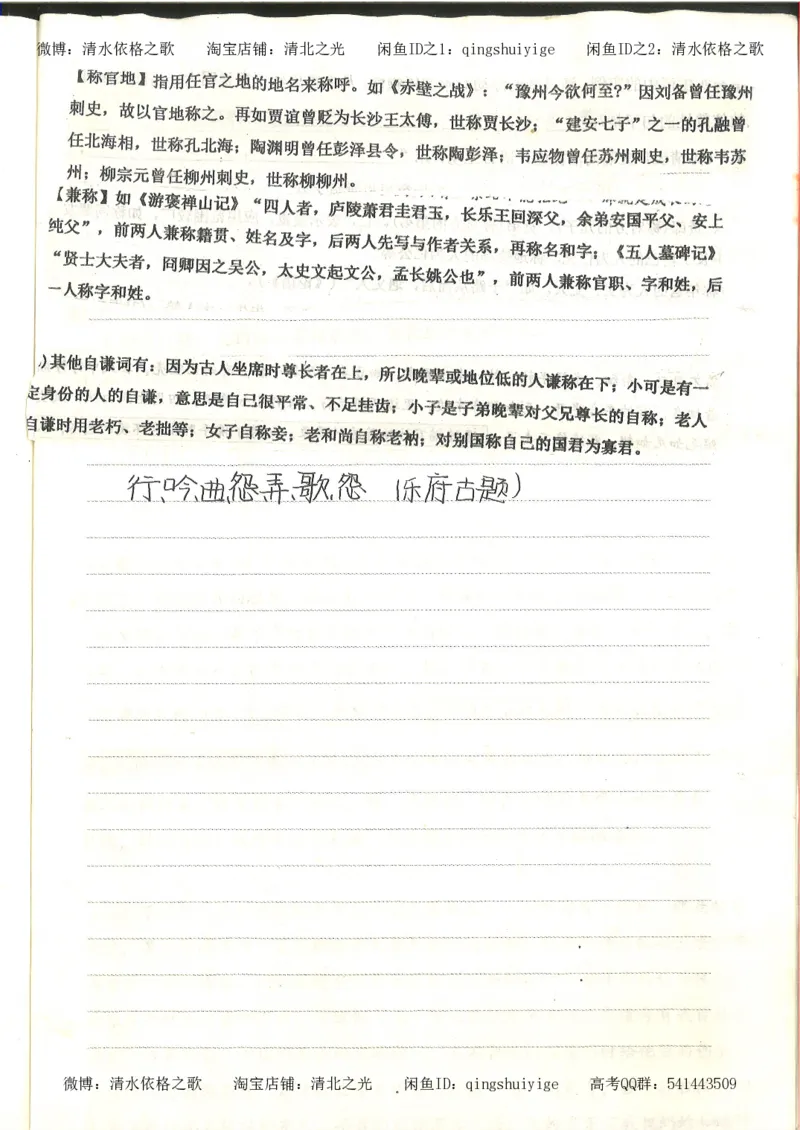 微博：清水依格之歌 淘宝店铺：清北之光 闲鱼ID之1：qingshuiyige 闲鱼ID之2：清水依格之歌
【称官地】指用任官之地的地名来称呼。如《赤壁之战》：“豫州今欲何至?”因刘备曾任豫州
刺史，故以官地称之。再如贾谊曾贬为长沙王太傅，世称贾长沙；“建安七子”之一的孔融曾
任北海相，世称孔北海；陶渊明曾任彭泽县令，世称陶彭泽；韦应物曾任苏州刺史，世称韦苏
州；柳宗元曾任柳州刺史，世称柳柳州。
【兼称】如《游褒禅山记》“四人者，庐陵萧君圭君玉，长乐王回深父，余弟安国平父、安上
纯父”，前两人兼称籍贯、姓名及字，后两人先写与作者关系，再称名和字；《五人墓碑记》
“贤士大夫者，冏卿因之吴公，太史文起文公，孟长姚公也”，前两人兼称官职、字和姓，后
一人称字和姓。
.)其他自谦词有：因为古人坐席时尊长者在上，所以晚辈或地位低的人谦称在下；小可是有一
定身份的人的自谦，意思是自己很平常、不足挂齿；小子是子弟晚辈对父兄尊长的自称；老人
自谦时用老朽、老拙等；女子自称妾；老和尚自称老衲；对别国称自己的国君为寡君。
行、吟、曲、怨、弄、歌、怨 （乐府古题）
微博：清水依格之歌 淘宝店铺：清北之光 闲鱼ID：qingshuiyige 高考QQ群：541443509